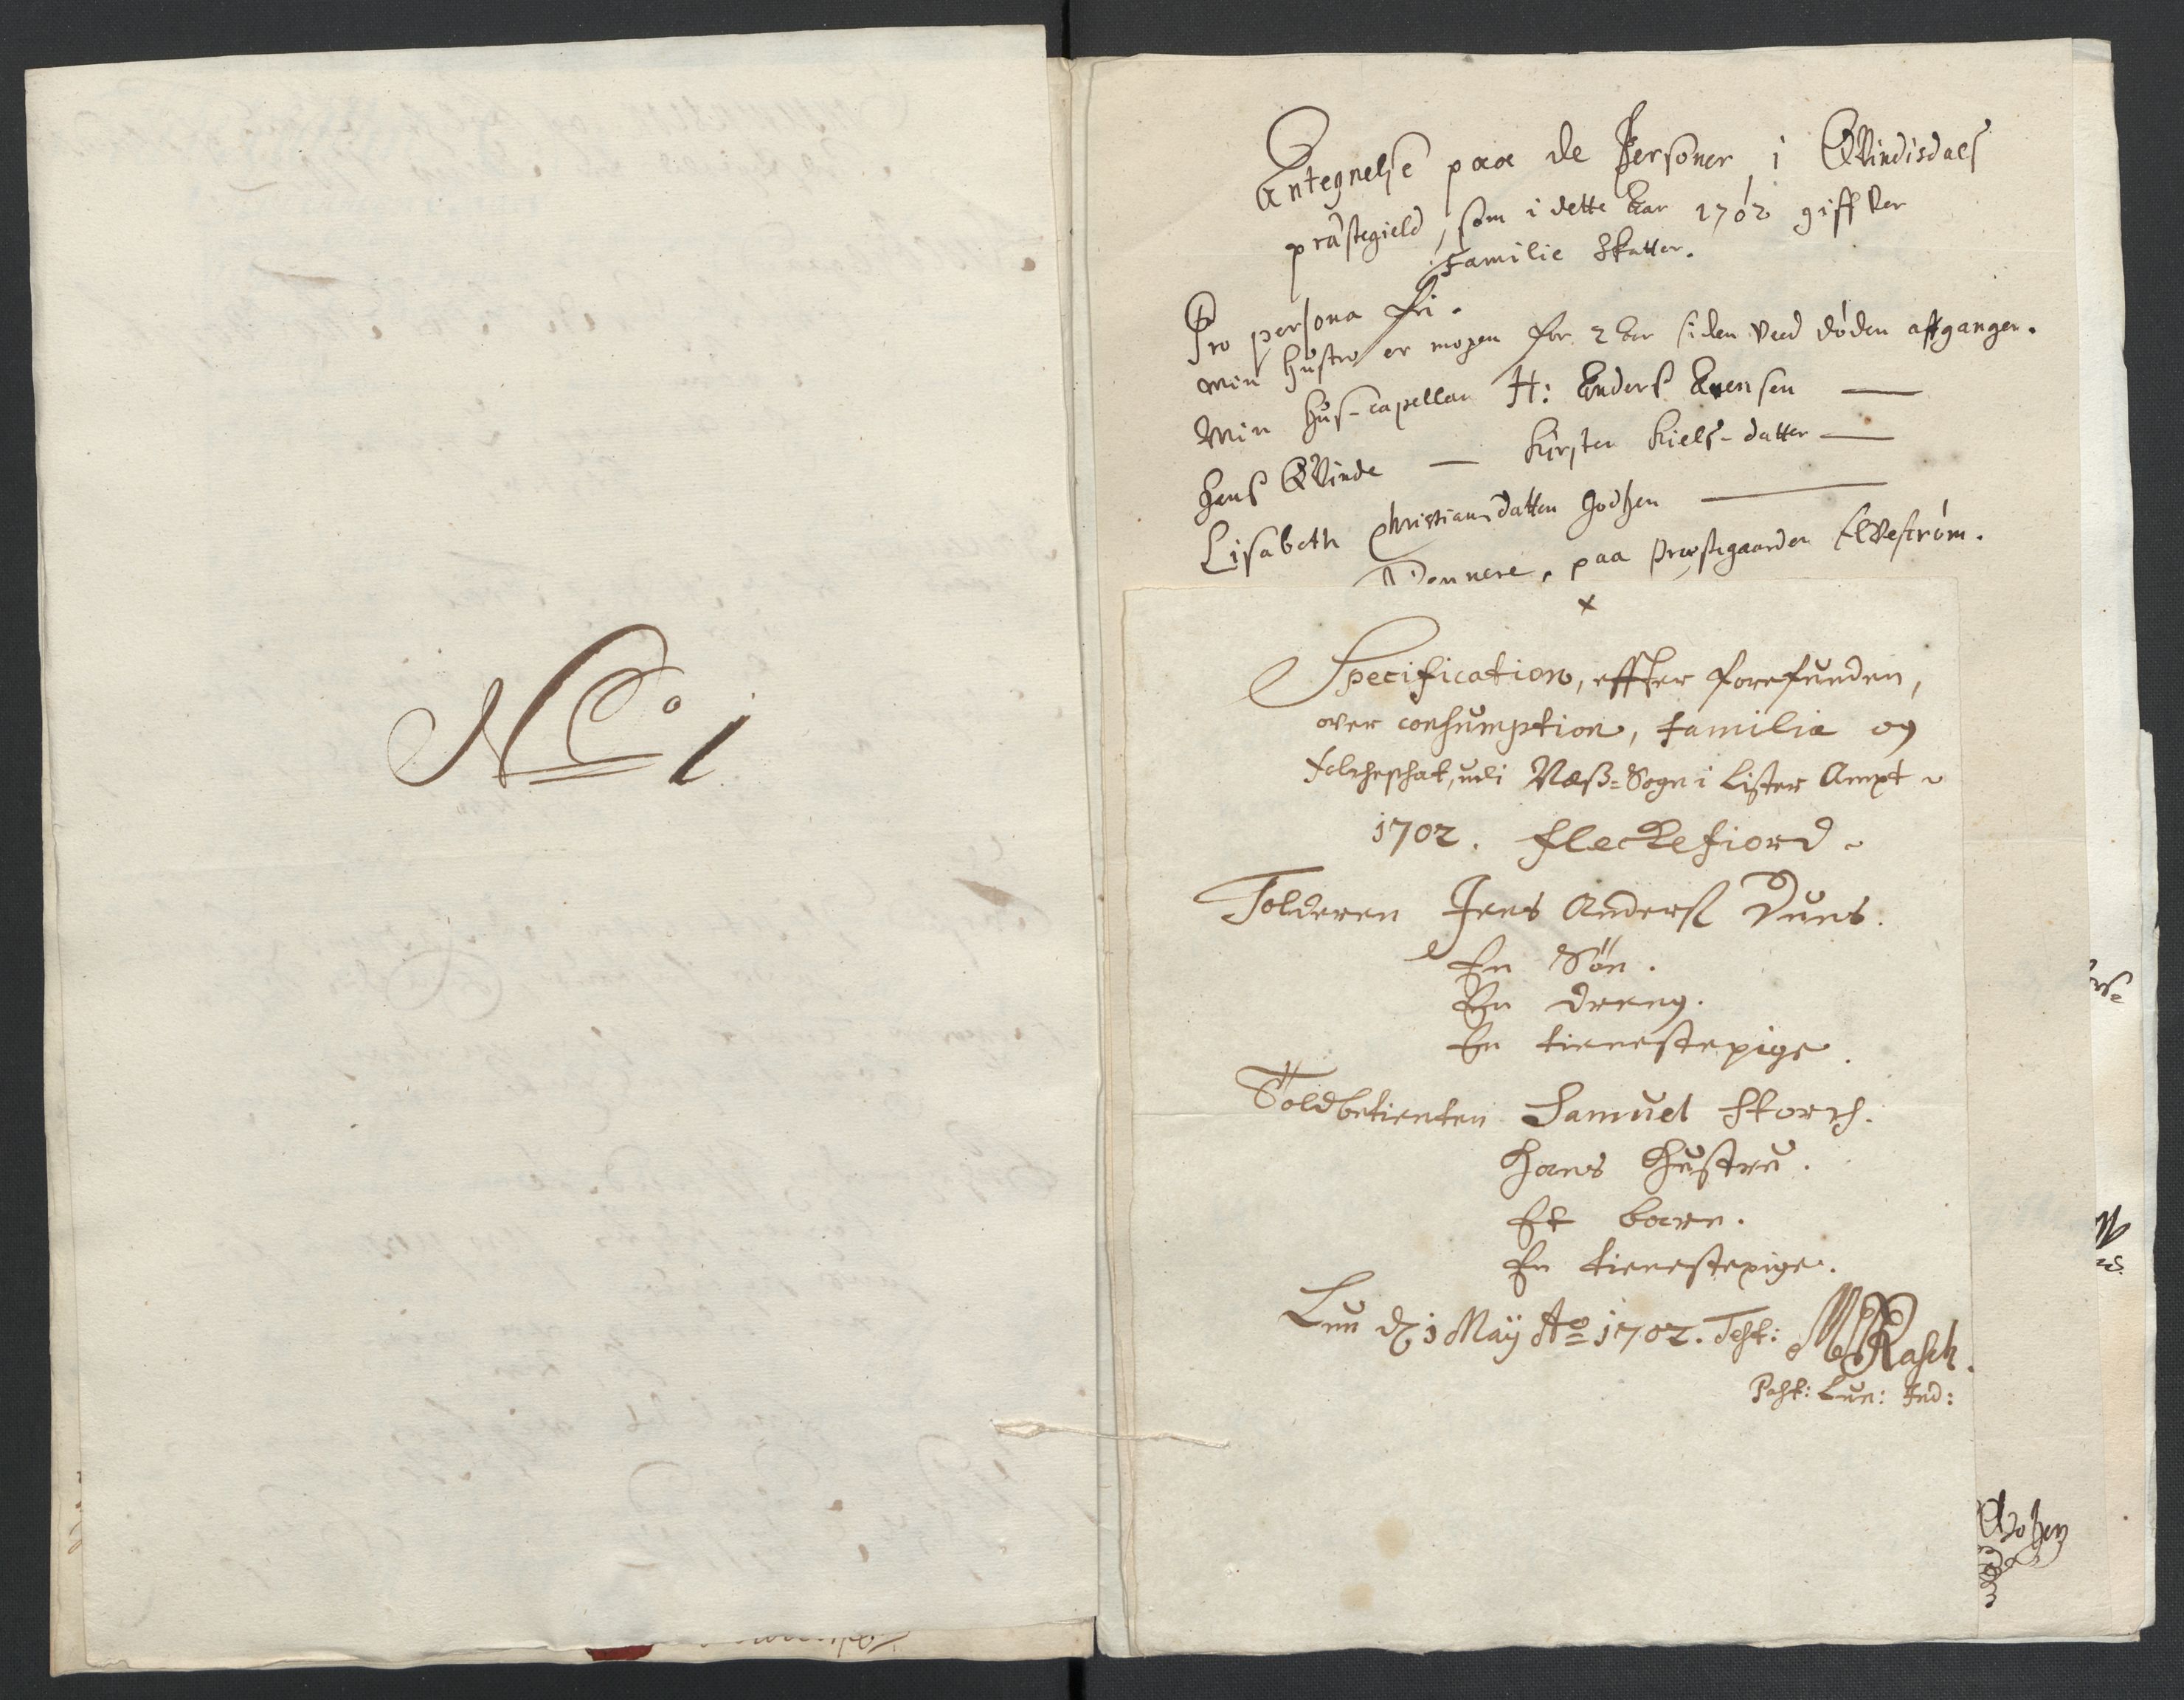 No 1
Antegnelse paa de Personer i Qvindisdals
præstegield, som i dette Aar 1702 giffver
familie Skatter.
Pro persona fri.
Min hustro er mogen for 2 Aar siden ved døden affgangen.
Min hus-capellan H: Anders Evensen —
Hans Qvinde — Kirsten Kiels-datter —
Lisabeth Christiansdatter Godtzen —
paa Præstegaarden Elvestrøm.
Specification, effter forefunden,
over consumption, familie og
folcheschat, udi Næss-Sogn i Lister Ampt
1702. Fleckefiord
Tolderen Jens Anders Duus.
En Søn.
En dreng.
En tienestepige.
Toldbetienten Samuel Storch.
Hans Hustru.
Et barn.
En tienestepige.
Lun d 1 Maÿ Ao 1702. Test: Rasch.
Past: Lun: Ind: